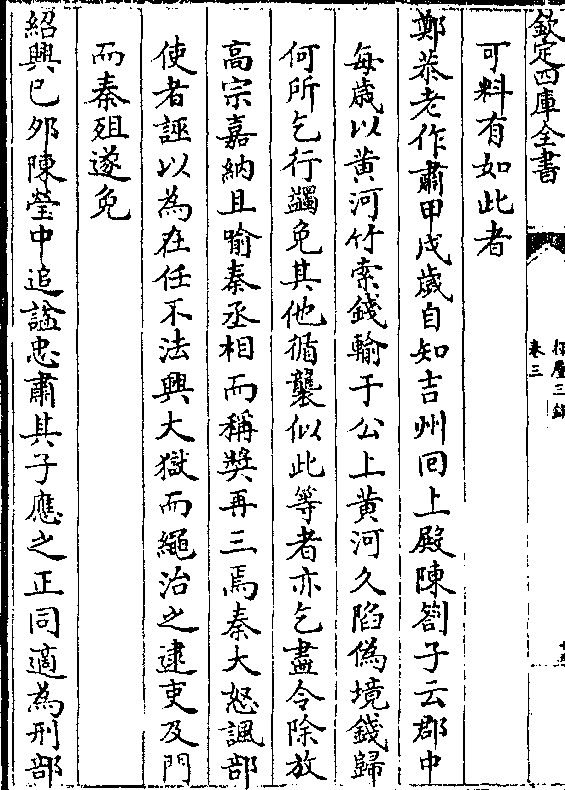 欽定四庫全書
揮麈三錄
卷三
可料有如此者
鄭恭老作肅甲戌歲自知吉州回上殿陳劄子云郡中
每歲以黃河竹索錢輸于公上黃河久陷偽境錢歸
何所乞行蠲免其他循襲似此等者亦乞盡令除放
高宗嘉納且喻秦丞相而稱奬再三焉秦大怒諷部
使者誣以為在任不法興大獄而繩治之逮吏及門
而秦殂遂免
紹興己夘陳瑩中追諡忠肅其子應之正同適為刑部